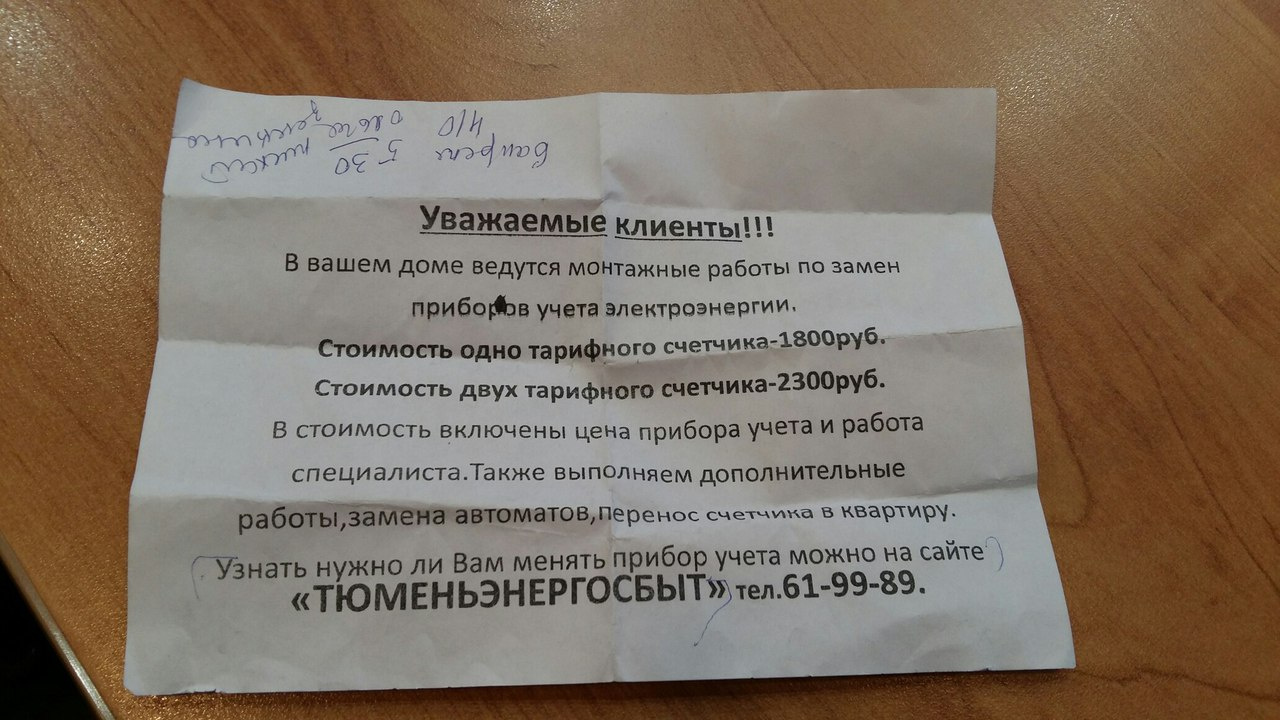 Уважаемые клиенты!!!
В вашем доме ведутся монтажные работы по замен
приборов учета электроэнергии.
Стоимость одно тарифного счетчика-1800руб.
Стоимость двух тарифного счетчика-2300руб.
В стоимость включены цена прибора учета и работа
специалиста.Также выполняем дополнительные
работы,замена автоматов,перенос счетчика в квартиру.
Узнать нужно ли Вам менять прибор учета можно на сайте
«ТЮМЕНЬЭНЕРГОСБЫТ» тел.61-99-89.
5 30
4/0